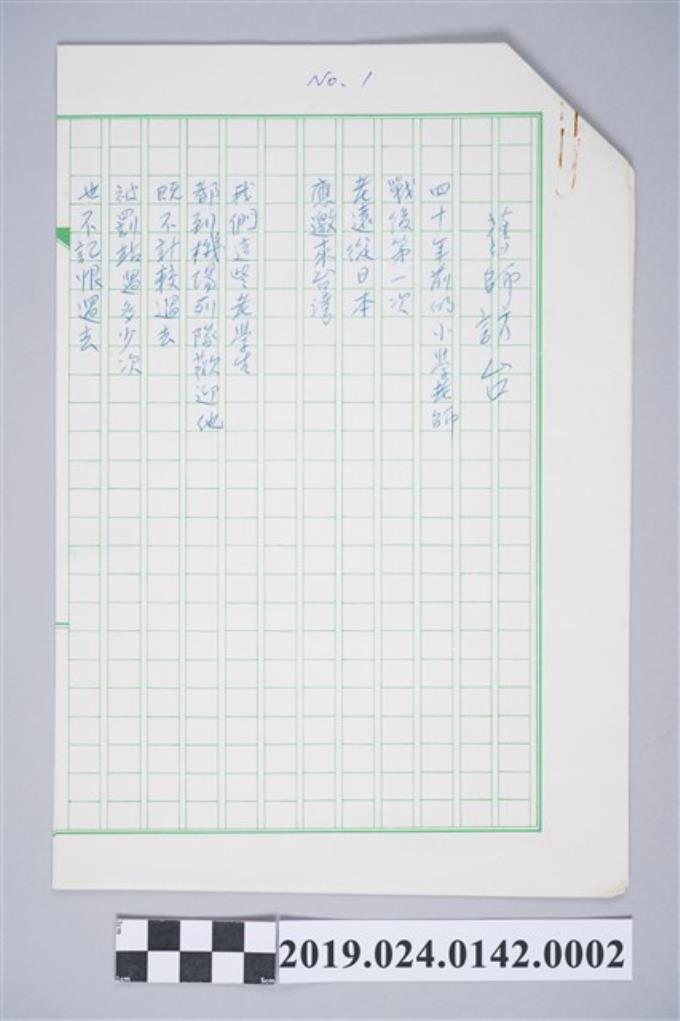 No. 1
舊師訪台
四十年前的小學老師
戰後第一次
老遠從日本
應邀來台灣
我們這些老學生
都到機場列隊歡迎他
既不計較過去
被罰站過多少次
也不記恨過去
2019.024.0142.0002